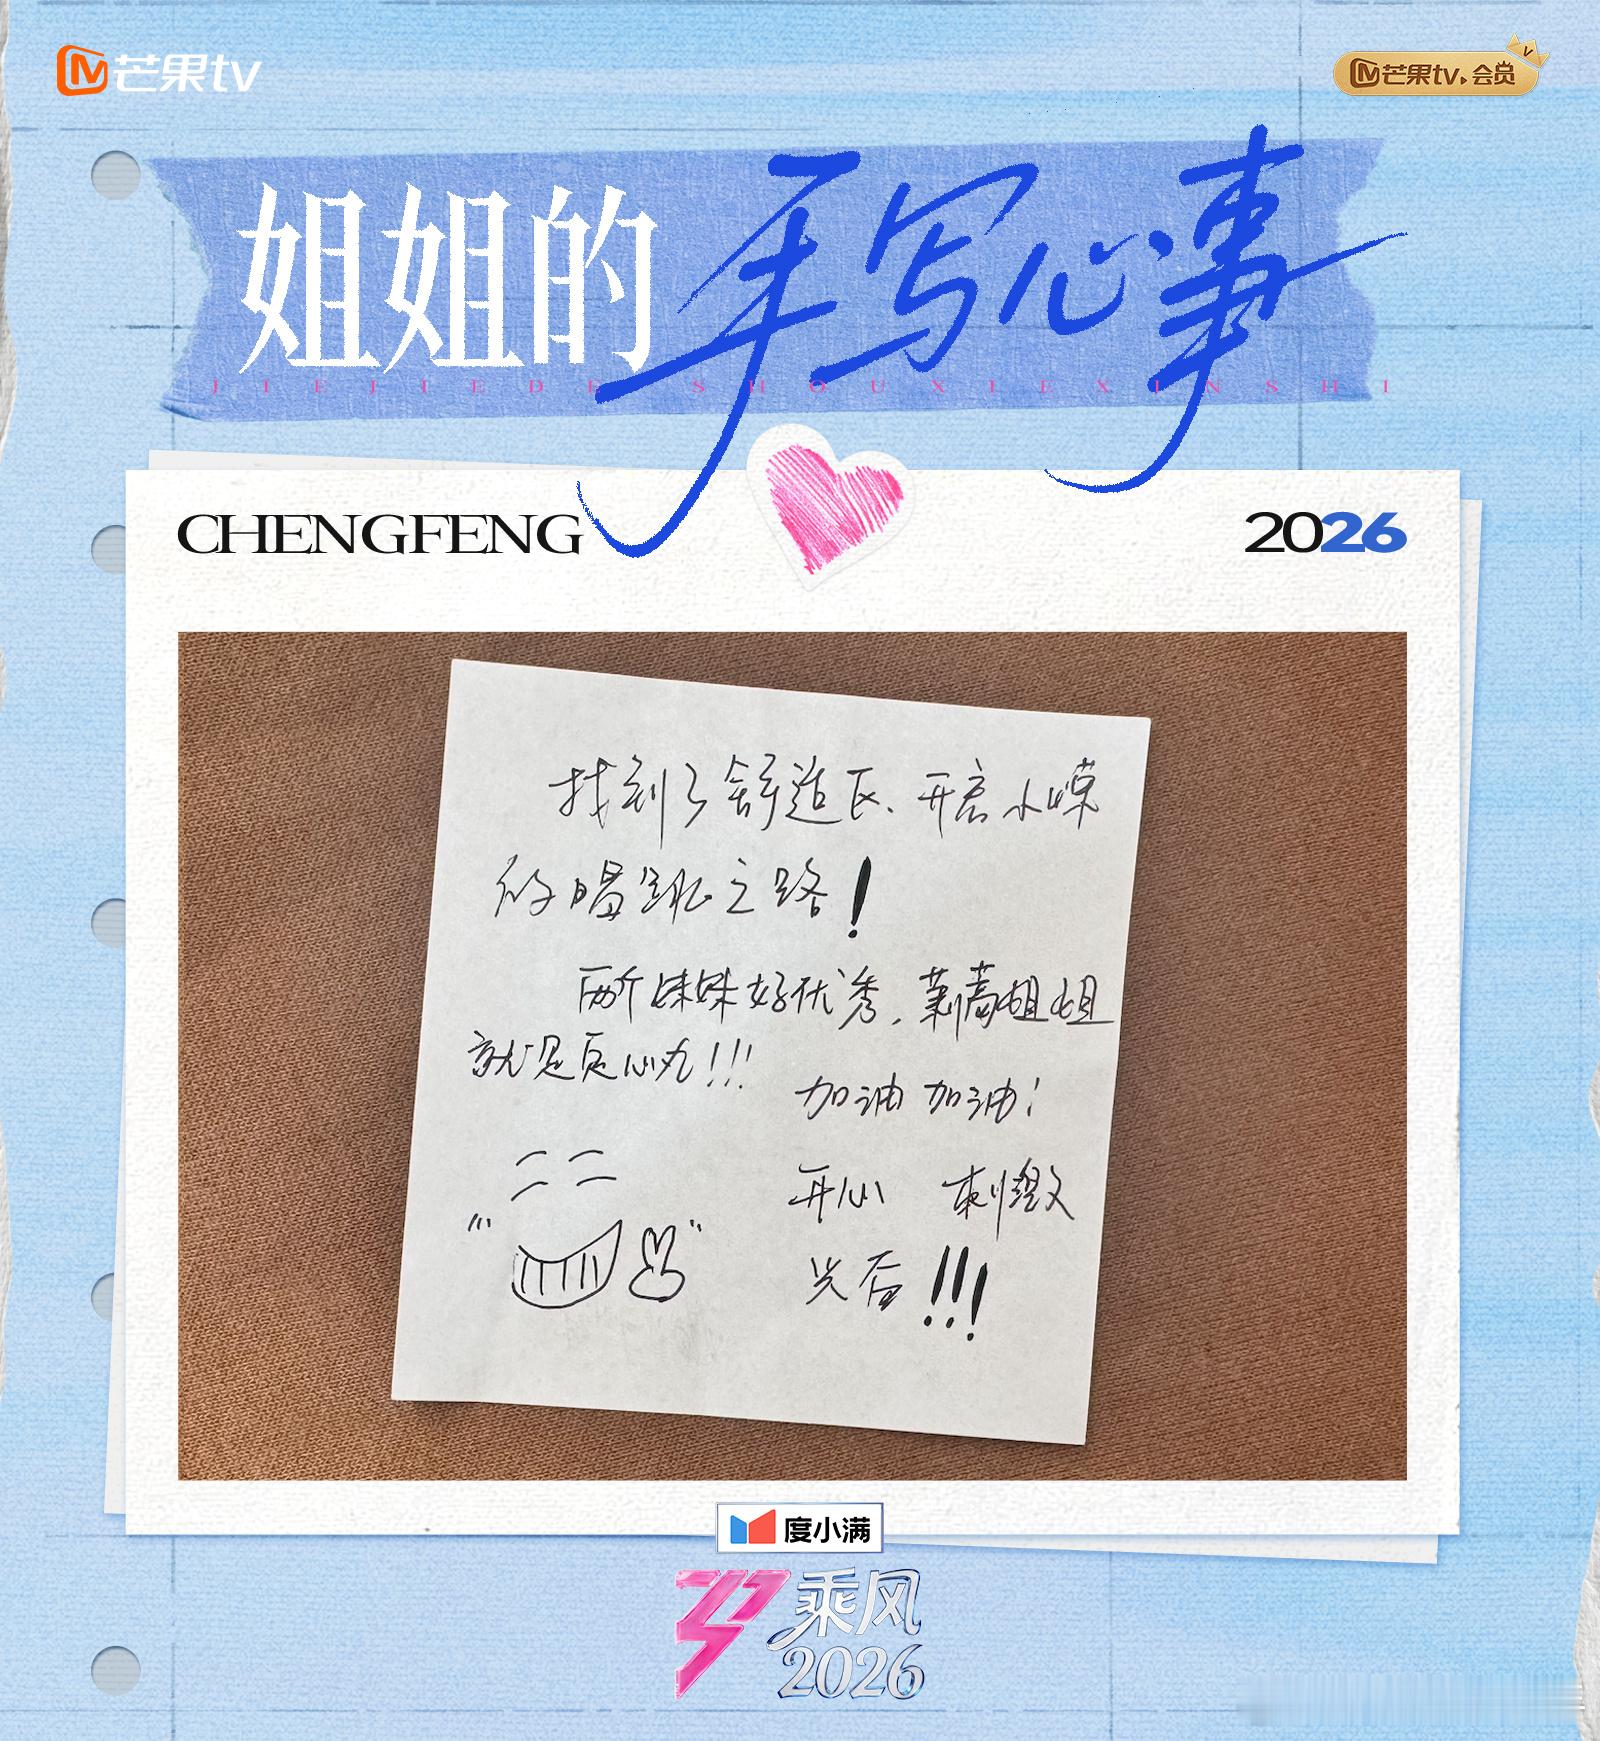 芒果tv
芒果tv会员
姐姐的手写心事
JIEJIEDE SHOUXIEXINSHI
CHENGFENG
2026
找到了舒适区、开启小嵘
的唱跳之路！
两个妹妹好优秀，莉莉姐姐
就是定心丸！！！
加油 加油！
开心 刺激
兴奋！！！
度小满
乘风
2026